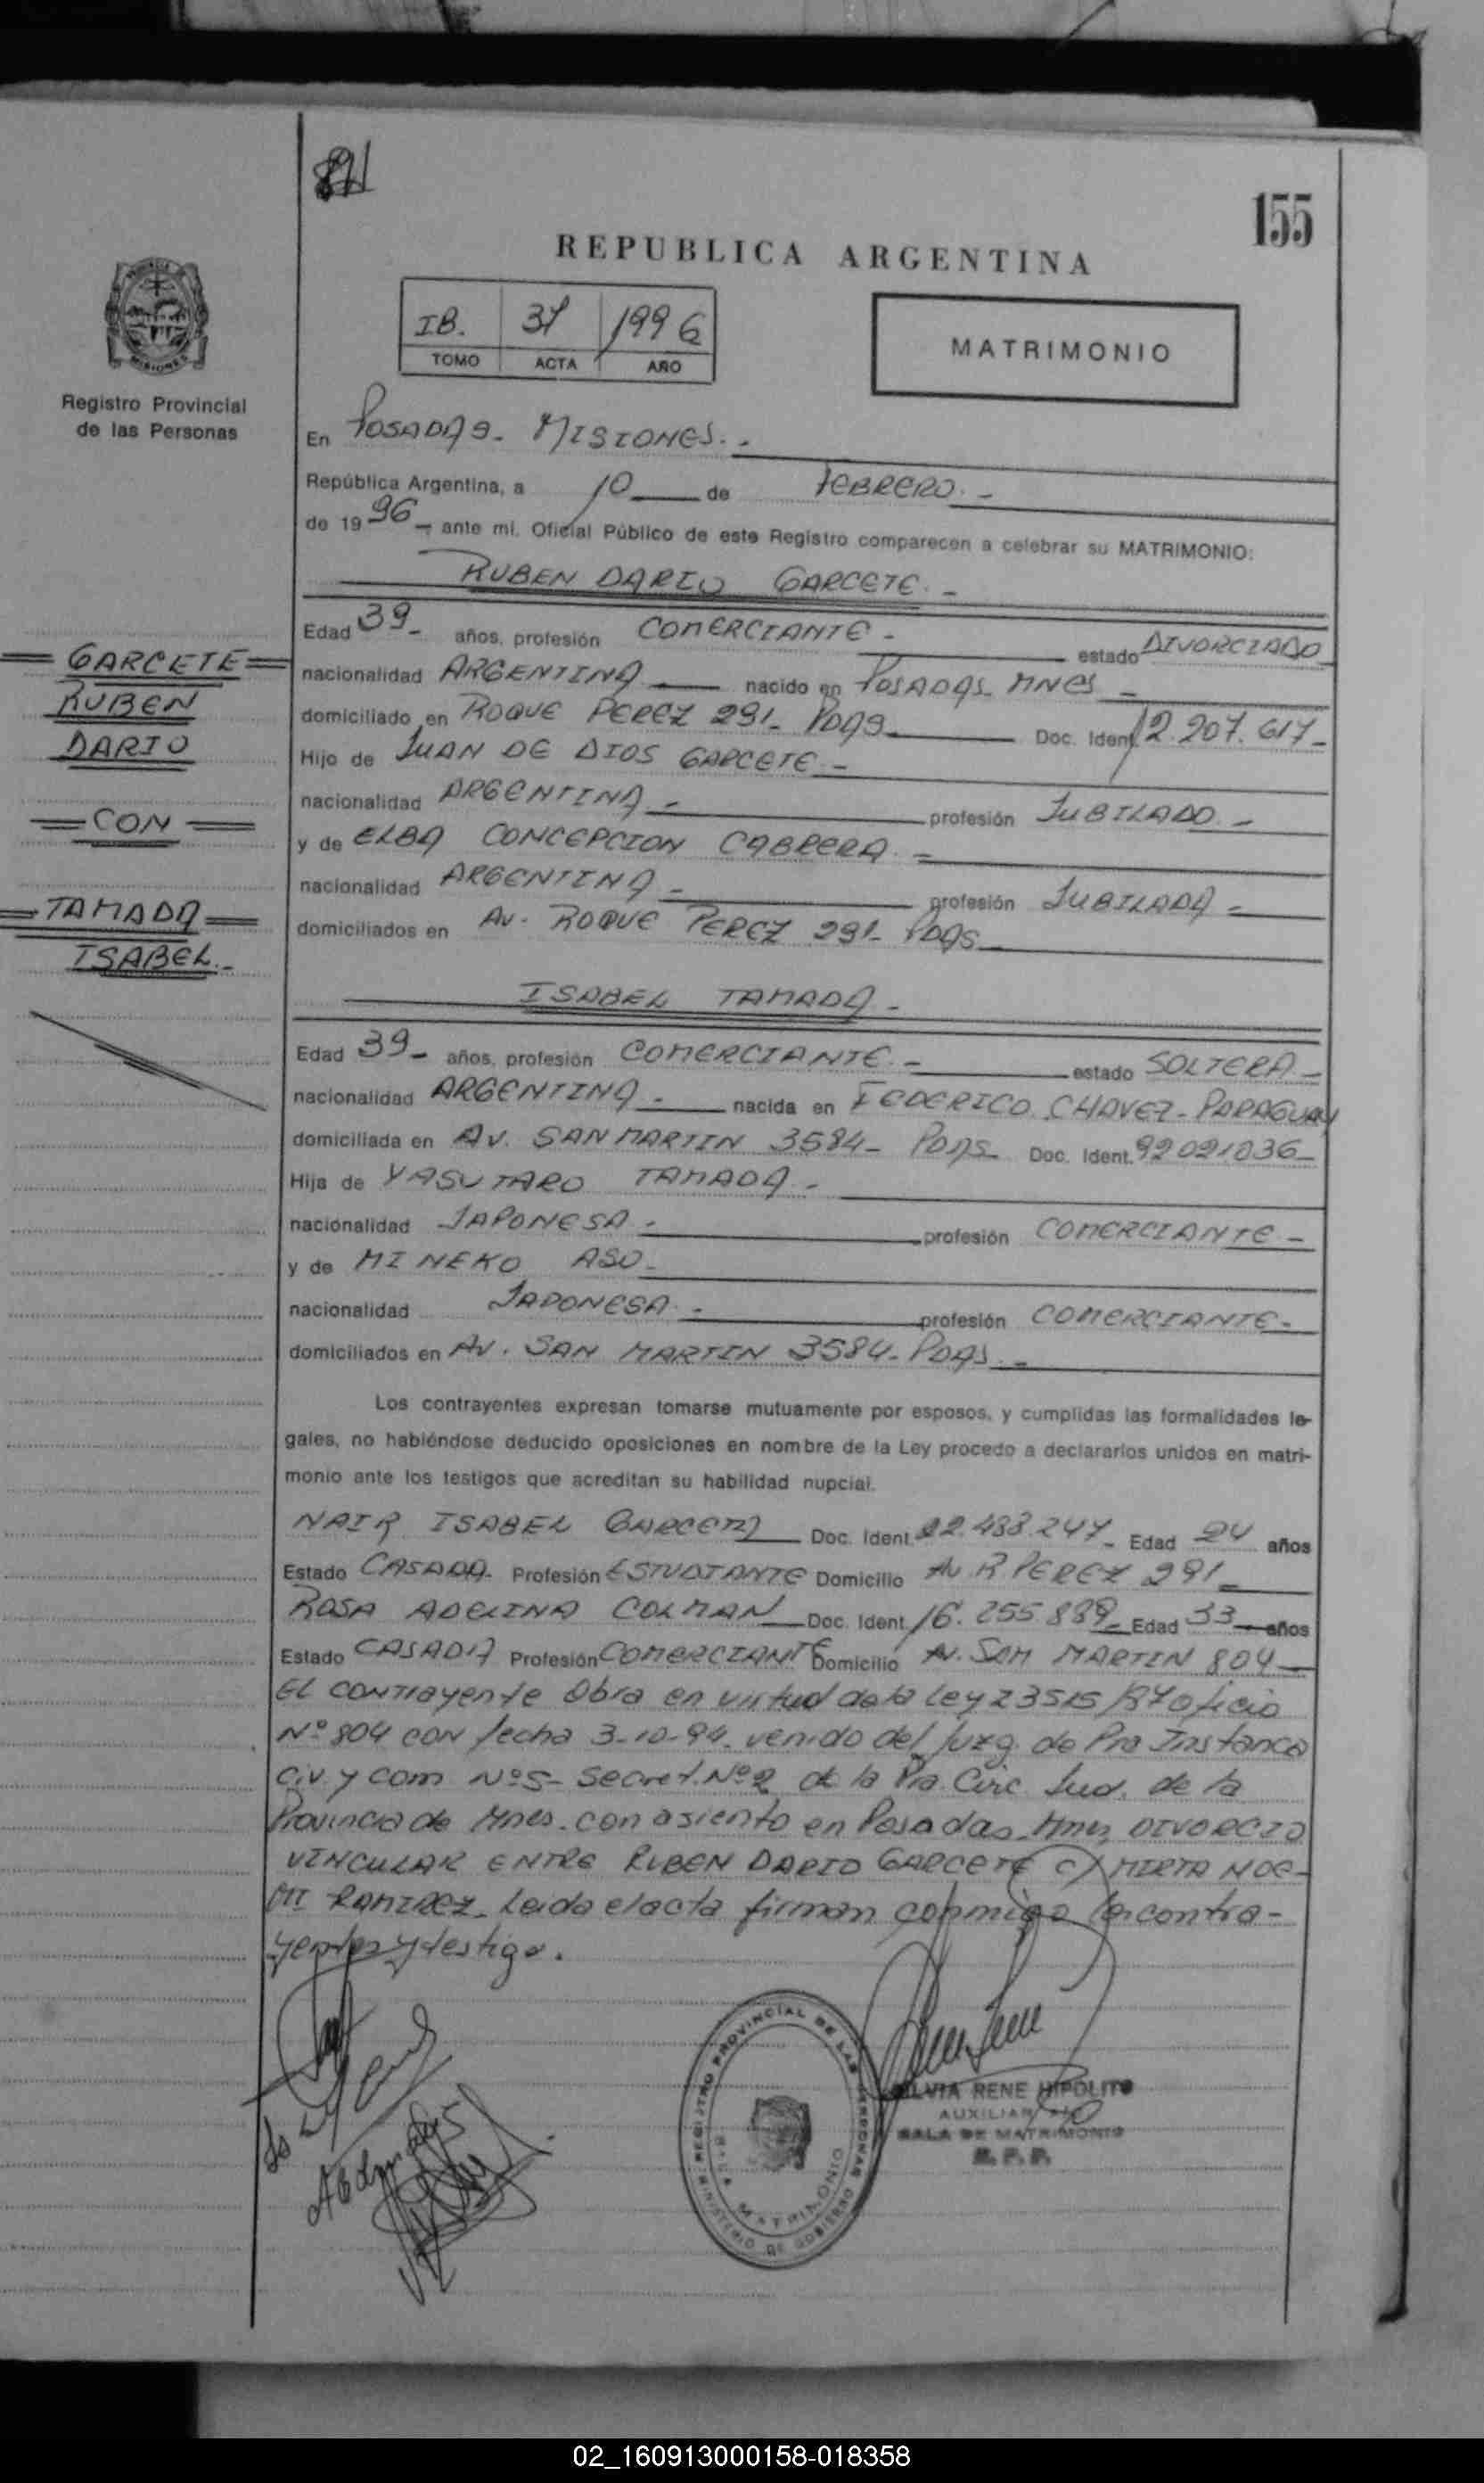 155
REPUBLICA ARGENTINA
IB. 37 1996
TOMO ACTA AÑO
MATRIMONIO
Registro Provincial
de las Personas
En POSADAS - MISIONES.-
República Argentina, a 10 de FEBRERO.-
de 1996 - ante mi, Oficial Público de este Registro comparecen a celebrar su MATRIMONIO:
RUBEN DARIO GARCETE.-
Edad 39- años, profesión COMERCIANTE- estado DIVORCIADO
GARCETE
RUBEN
DARIO
CON
TAMADA
ISABEL.-
nacionalidad ARGENTINA nacido en POSADAS MNES -
domiciliado en ROQUE PEREZ 291- PDAS Doc. Ident. 12.207.617-
Hijo de JUAN DE DIOS GARCETE.-
nacionalidad ARGENTINA - profesión JUBILADO.-
y de ELBA CONCEPCION CABRERA.-
nacionalidad ARGENTINA - profesión JUBILADA-
domiciliados en AV. ROQUE PEREZ 291- PDAS
ISABEL TAMADA-
Edad 39- años, profesión COMERCIANTE.- estado SOLTERA-
nacionalidad ARGENTINA- nacida en FEDERICO CHAVEZ-PARAGUAY
domiciliada en AV. SAN MARTIN 3584- PDAS Doc. Ident. 92021036-
Hija de YASUTARO TAMADA-
nacionalidad JAPONESA.- profesión COMERCIANTE-
y de MINEKO ASO-
nacionalidad JAPONESA.- profesión COMERCIANTE-
domiciliados en AV. SAN MARTIN 3584- PDAS.-
Los contrayentes expresan tomarse mutuamente por esposos, y cumplidas las formalidades le-
gales, no habiéndose deducido oposiciones en nombre de la Ley procedo a declararlos unidos en matri-
monio ante los testigos que acreditan su habilidad nupcial.
NAIR ISABEL Doc. Ident. 22.483.247- Edad 24 años
Estado CASADA- Profesión ESTUDIANTE Domicilio AV R PEREZ 291-
ROSA ADELINA COLMAN Doc. Ident. 16.255.889- Edad 33 años
Estado CASADA Profesión COMERCIANTE Domicilio AV. SAN MARTIN 804
EL contrayente Obra en virtud de la Ley 23515/87 oficio
Nº 804 con fecha 3-10-94. venido del Juzg. de Pra Instancia
Civ. y Com Nº5- Secret. Nº2 de la Pra. Circ. Jud. de la
Provincia de Mnes. con asiento en Posadas Mnes, DIVORCIO
VINCULAR ENTRE RUBEN DARIO GARCETE C/ MIRTA NOE-
MI RAMIREZ- Leida el acta firman conmigo los contra-
yentes y testigo.
REGISTRO PROVINCIAL DE LAS PERSONAS
MATRIMONIO
MINISTERIO DE GOBIERNO
SILVIA RENE HIPOLITO
AUXILIAR
SALA DE MATRIMONIO
R. P. P.
02_160913000158-018358